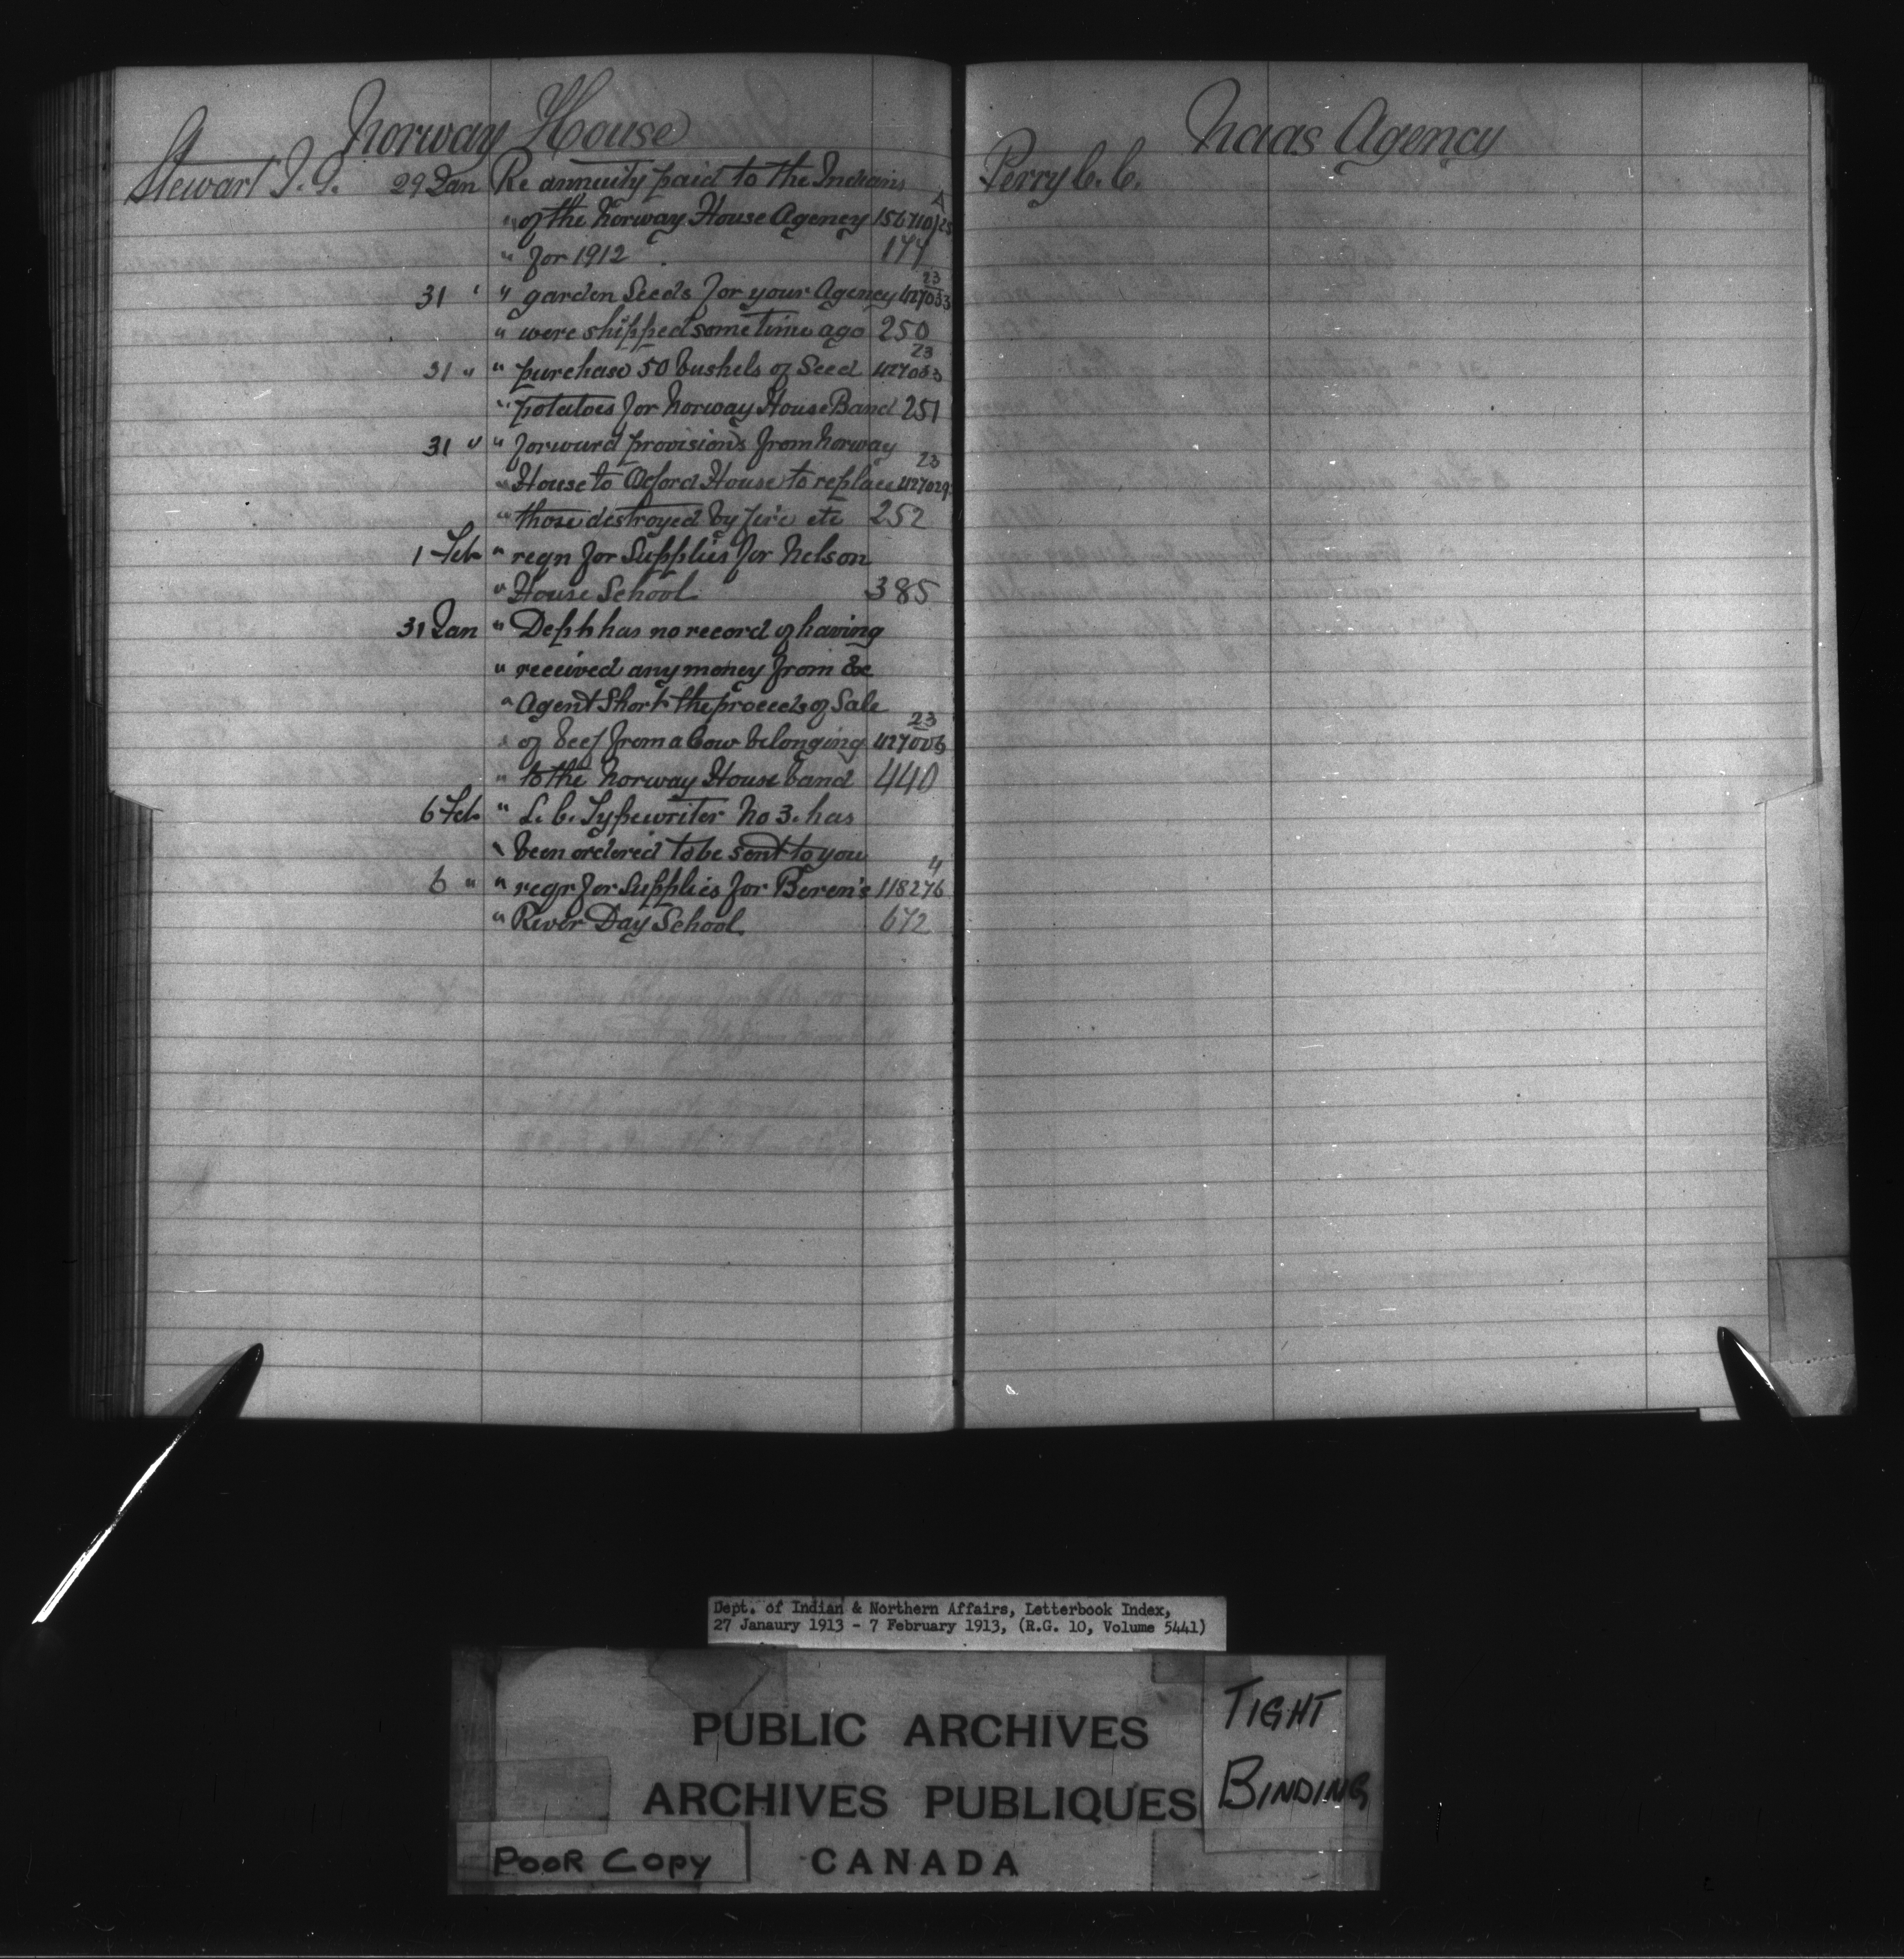 Norway House
Stewart J. G. 29 Jan Re annuity paid to the Indians
" of the Norway House Agency 156710/25 A
" for 1912 174
31 " " garden Seeds for your Agency 427033 23
" were shipped some time ago 250
31 " " purchase 50 bushels of Seed 427033 23
" potatoes for Norway House Band 251
31 " " forward provisions from Norway
" House to Oxford House to replace 427029 23
" those destroyed by fire etc 252
1 Feb " reqn for Supplies for Nelson
" House School 385
31 Jan " Dept has no record of having
" received any money from Ex
" Agent Short the proceeds of Sale
" of beef from a Cow belonging 427006 23
" to the Norway House band 440
6 Feb " L. C. Typewriter No 3. has
" been ordered to be sent to you
6 " " reqn for Supplies for Beren's 118276 4
" River Day School. 672
Naas Agency
Perry C. C.
Dept. of Indian & Northern Affairs, Letterbook Index,
27 Janaury 1913 - 7 February 1913, (R.G. 10, Volume 5441)
PUBLIC ARCHIVES
ARCHIVES PUBLIQUES
CANADA
TIGHT
BINDING
POOR COPY